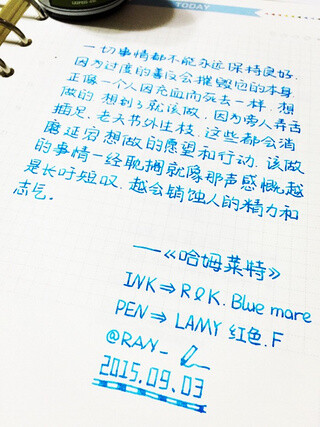 TODAY
一切事情都不能永远保持良好,
因为过度的善反会摧毁它的本身,
正像一个人因充血而死去一样. 想
做的 想到了就该做, 因为旁人弄舌
插足, 老天节外生枝, 这些都会消
磨延宕想做的愿望和行动, 该做
的事情一经耽搁就像那声感慨, 越
是长吁短叹, 越会销蚀人的精力和
志气。
——《哈姆莱特》
INK⇒R&K. Blue mare
PEN⇒LAMY 红色. F
@RAN_
2015.09.03